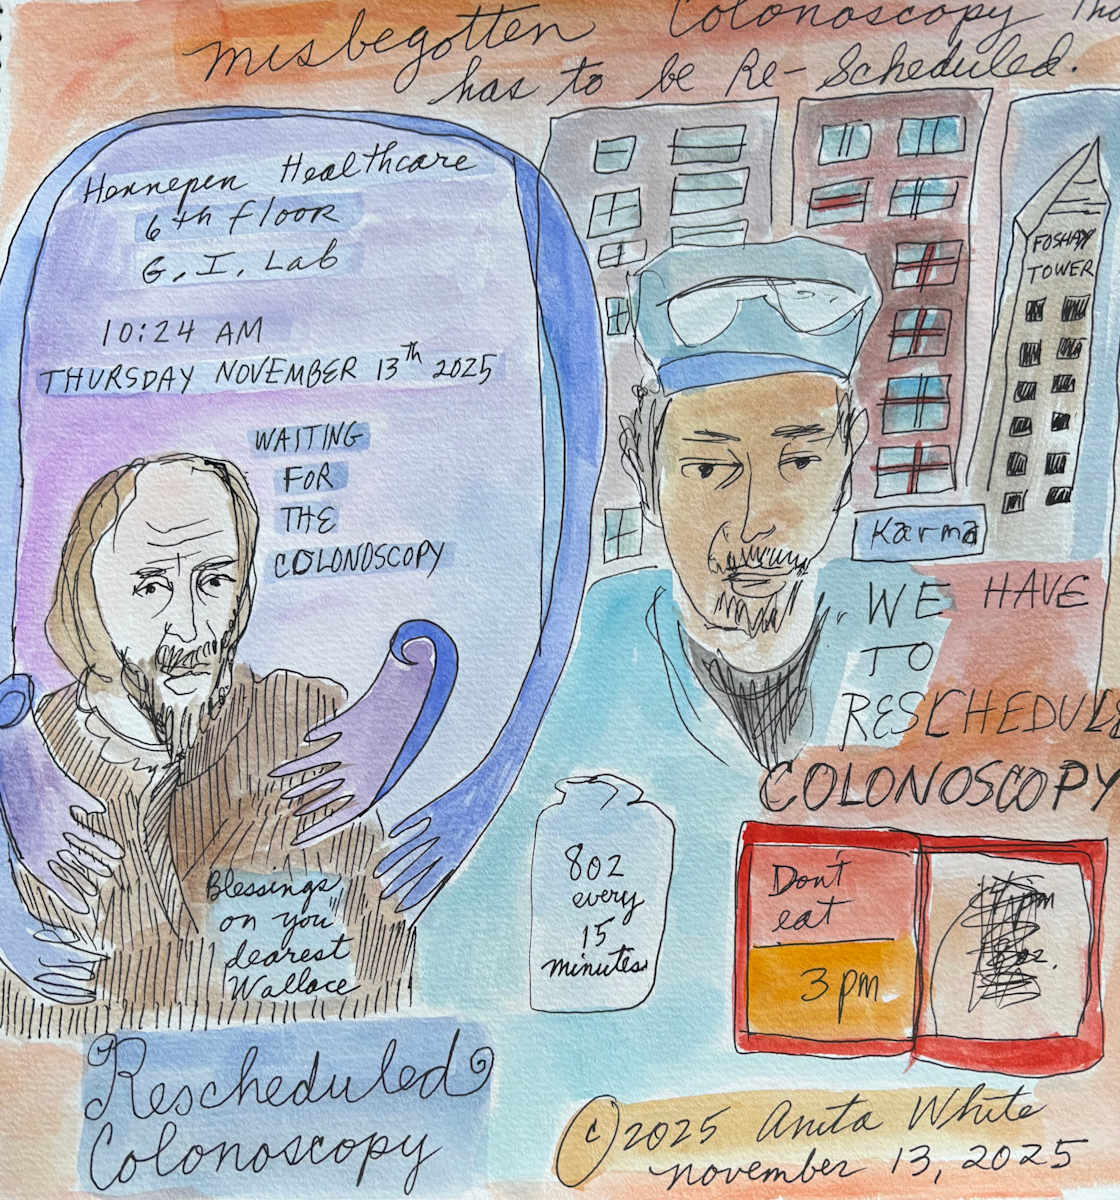 misbegotten Colonoscopy Tha
has to be Re-Scheduled.
Hennepen Healthcare
6th floor
G.I. Lab
10:24 AM
THURSDAY NOVEMBER 13th 2025
WAITING
FOR
THE
COLONOSCOPY
FOSHAY
TOWER
Karma
"WE HAVE
TO
RESCHEDULE
COLONOSCOPY
8oz
every
15
minutes
Don't
eat
3pm
pm
Blessings
on you
dearest
Wallace
Rescheduled
Colonoscopy
© 2025 Anita White
november 13, 2025